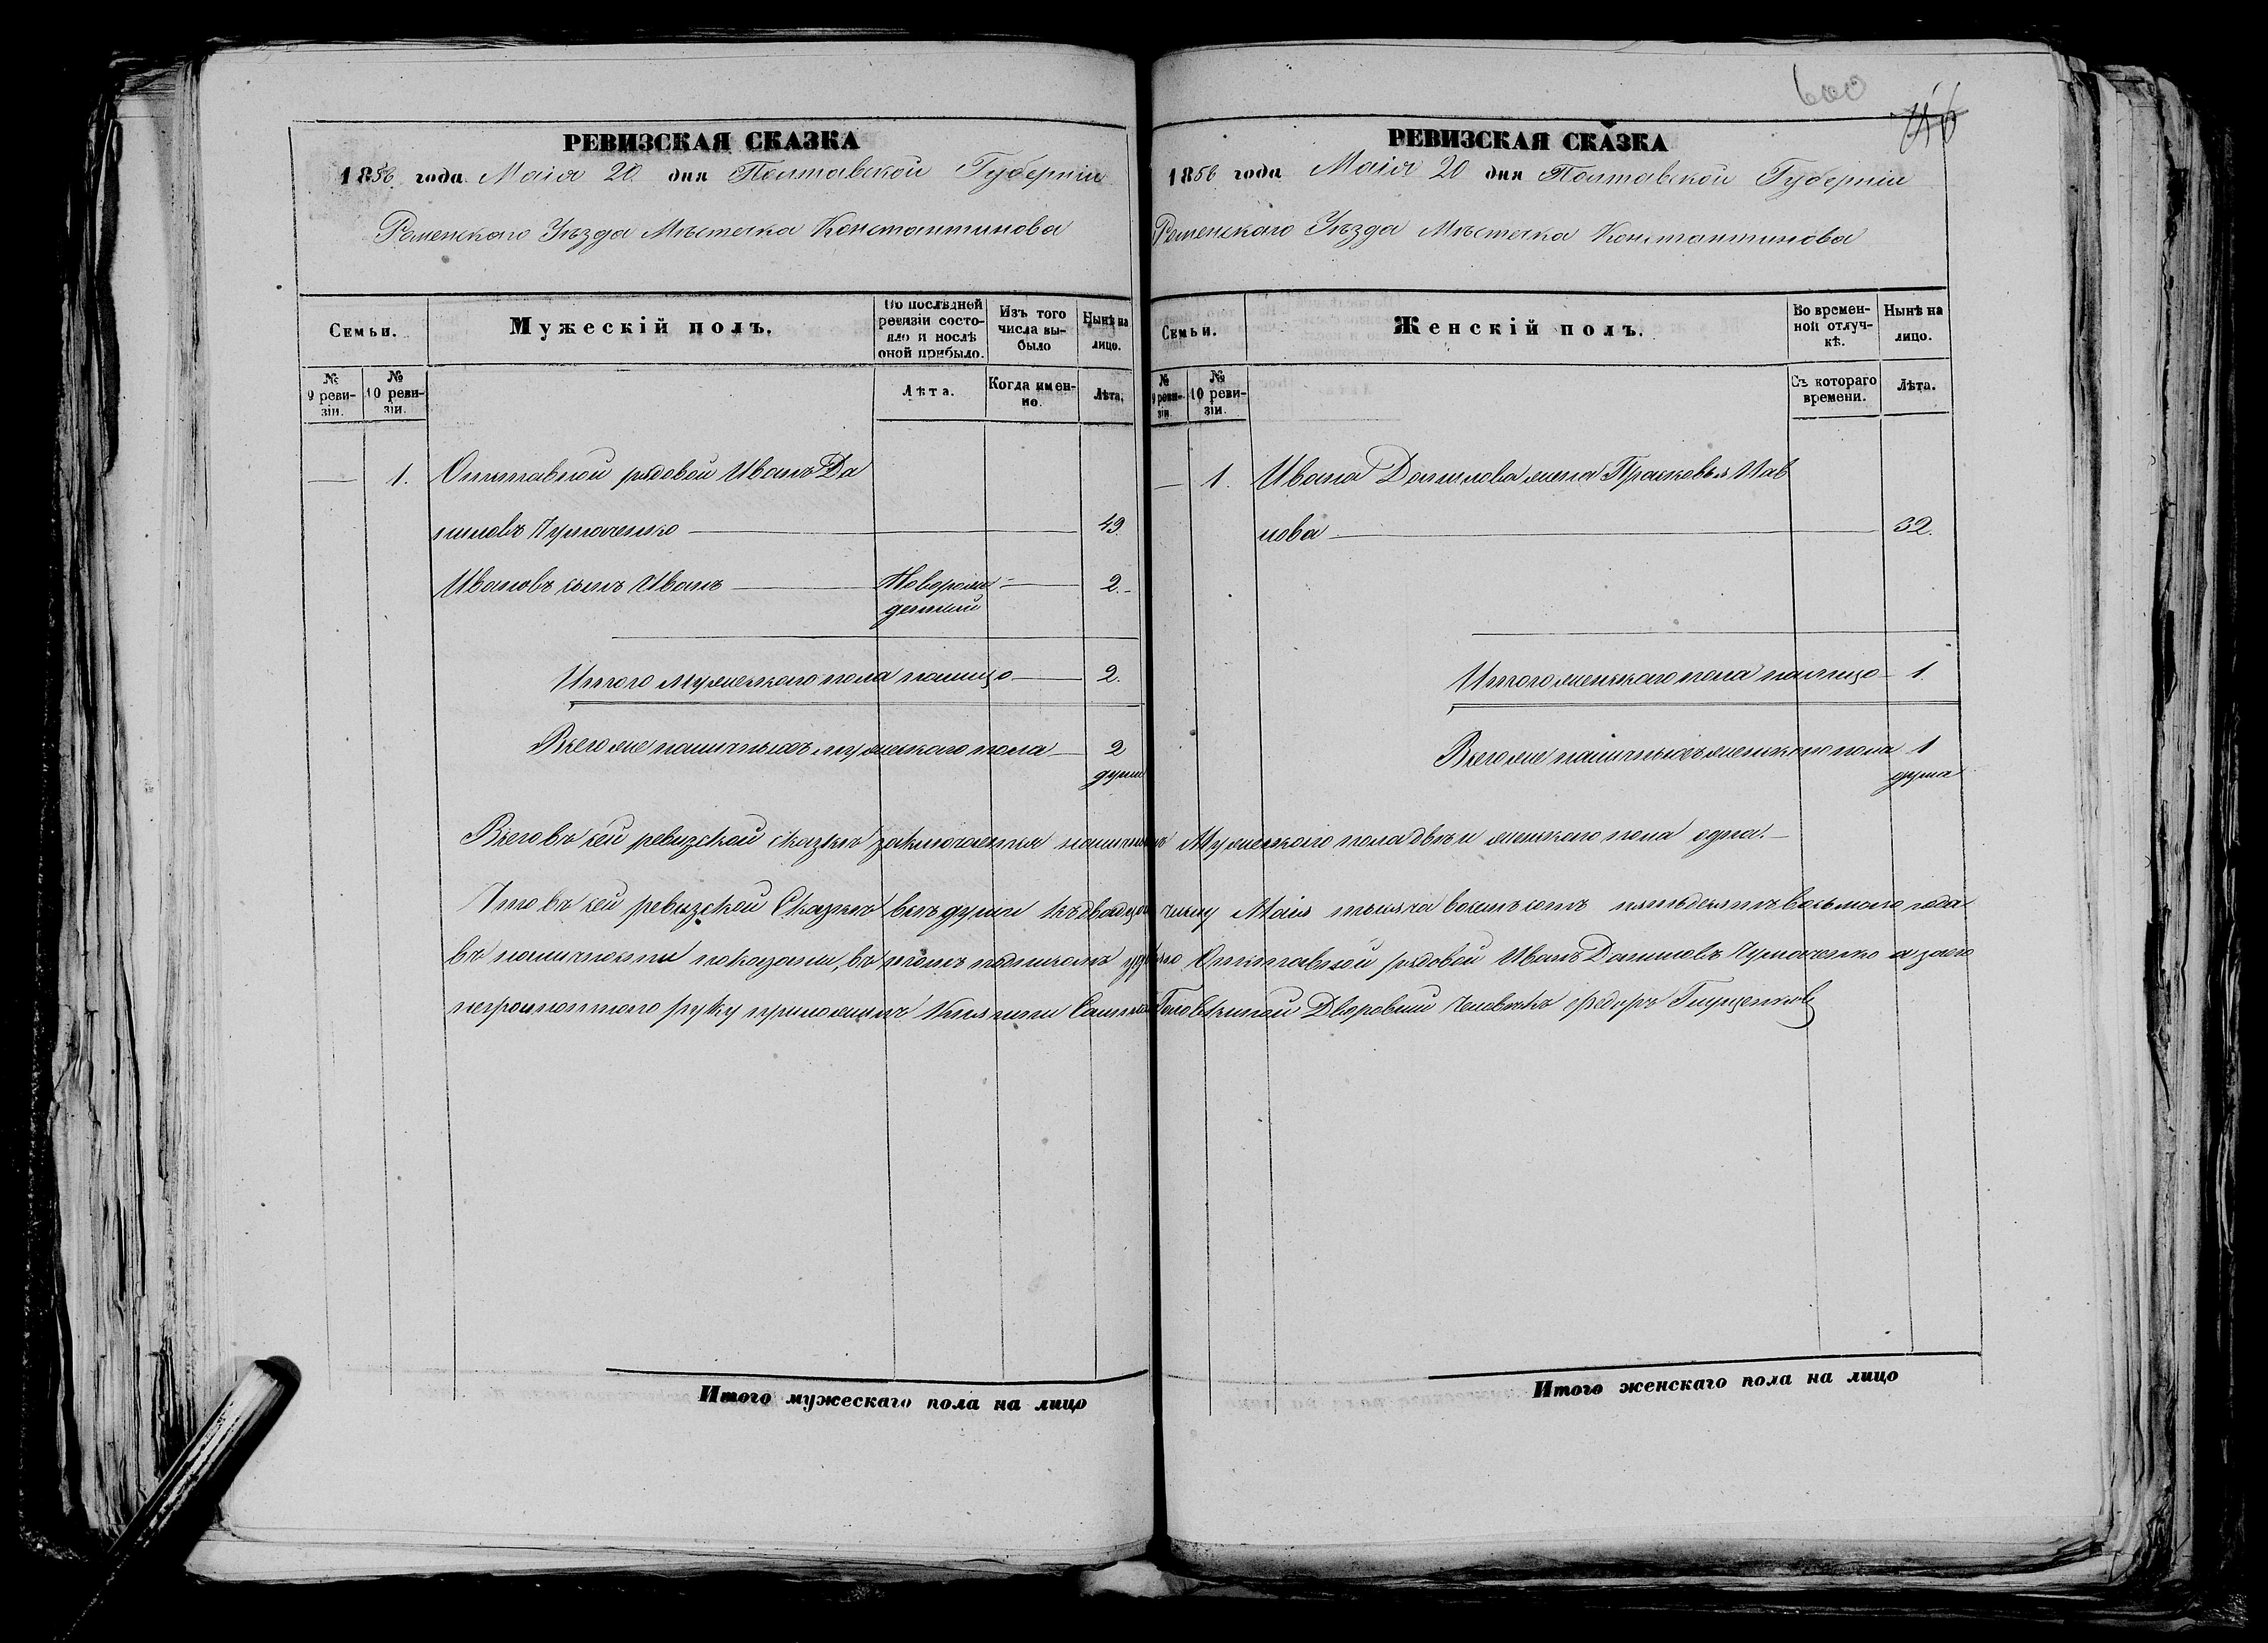 РЕВИЗСКАЯ СКАЗКА
1856 года Маія 20 дня Полтавской Губерніи
Роменскаго Уѣзда Мѣстечка Константинова
Семьи.
Мужескій полъ.
По послѣдней ревизіи состояло и послѣ оной прибыло.
Изъ того числа выбыло
Нынѣ на лицо.
№ 9 ревизіи.
№ 10 ревизіи.
Лѣта.
Когда именно.
Лѣта.
— 1. Отставной рядовой Иванъ Да
ниловъ — 49.
Ивановъ сынъ Иванъ — Новорож
денный — 2.
Итого мужескаго пола налицо — 2.
Всего же наличныхъ мужескаго пола — 2
души
Итого мужескаго пола на лицо
600
РЕВИЗСКАЯ СКАЗКА
1856 года Маія 20 дня Полтавской Губерніи
Роменскаго Уѣзда Мѣстечка Константинова
Семьи.
Женскій полъ.
Во временной отлучкѣ.
Нынѣ на лицо.
№ 9 ревизіи
№ 10 ревизіи.
Съ котораго времени.
Лѣта.
— 1. Ивана Данилова жена Прасковья
— 32.
Итого женскаго пола налицо — 1.
Всего же наличныхъ женскаго пола 1
душа
Всего въ сей ревизской сказкѣ заключается мужескаго пола двѣ и женскаго пола одна. —
Что въ сей ревизской Сказкѣ всѣ души къ Маія тысяча восемъ сотъ пятьдесятъ восьмого года
въ наличности показаны, въ томъ Отставной рядовой Иванъ Даниловъ а за него
неграмотного руку приложилъ Княгини Дворовый Человѣкъ Федоръ
Итого женскаго пола на лицо